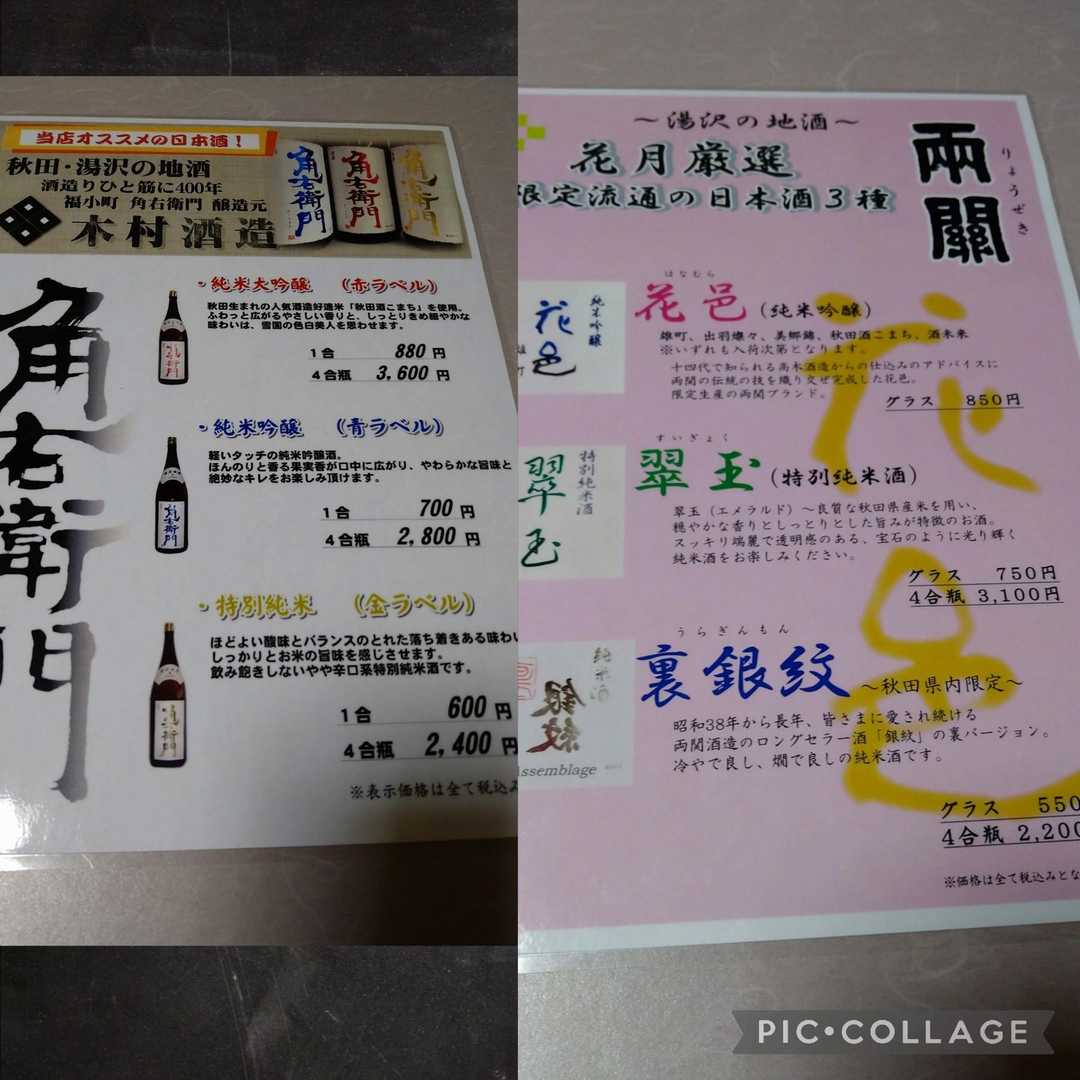 当店オススメの日本酒！
秋田・湯沢の地酒
酒造りひと筋に400年
福小町 角右衛門 醸造元
木村酒造
角右衛門
角右衛門
角右衛門
角右衛門
・純米大吟醸 （赤ラベル）
秋田生まれの人気酒造好適米「秋田酒こまち」を使用。
ふわっと広がるやさしい香りと、しっとりきめ細やかな
味わいは、雪国の色白美人を思わせます。
1合 880円
4合瓶 3,600円
・純米吟醸 （青ラベル）
軽いタッチの純米吟醸酒。
ほんのりと香る果実香が口中に広がり、やわらかな旨味と
絶妙なキレをお楽しみ頂けます。
角右衛門
1合 700円
4合瓶 2,800円
・特別純米 （金ラベル）
ほどよい酸味とバランスのとれた落ち着きある味わい
しっかりとお米の旨味を感じさせます。
飲み飽きしないやや辛口系特別純米酒です。
角右衛門
1合 600円
4合瓶 2,400円
※表示価格は全て税込み
～湯沢の地酒～
花月厳選
限定流通の日本酒3種
兩關
りょうぜき
はなむら
花邑（純米吟醸）
純米吟醸
花邑
雄町、出羽燦々、美郷錦、秋田酒こまち、酒未来
※いずれも入荷次第となります。
十四代で知られる高木酒造からの仕込みのアドバイスに
両関の伝統の技を織り交ぜ完成した花邑。
限定生産の両関ブランド。
グラス 850円
花邑
すいぎょく
翠玉（特別純米酒）
特別純米酒
翠玉
翠玉（エメラルド）～良質な秋田県産米を用い、
穏やかな香りとしっとりとした旨みが特徴のお酒。
スッキリ端麗で透明感のある、宝石のように光り輝く
純米酒をお楽しみください。
グラス 750円
4合瓶 3,100円
うらぎんもん
裏銀紋 ～秋田県内限定～
純米酒
銀紋
Assemblage
昭和38年から長年、皆さまに愛され続ける
両関酒造のロングセラー酒「銀紋」の裏バージョン。
冷やで良し、燗で良しの純米酒です。
グラス 550
4合瓶 2,200
※価格は全て税込みとな
PIC•COLLAGE